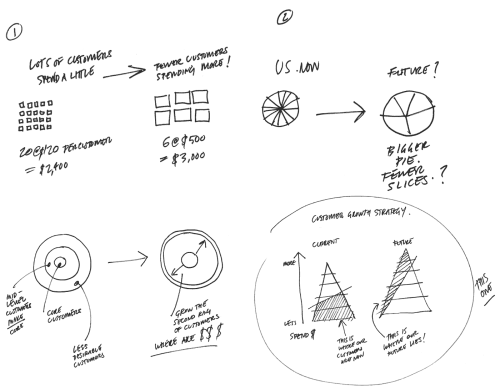 1
LOTS OF CUSTOMERS
SPEND A LITTLE
FEWER CUSTOMERS
SPENDING MORE!
20@$120 PER CUSTOMER
= $2,400
6@$500
= $3,000
2
US. NOW
FUTURE?
BIGGER
PIE.
FEWER
SLICES.?
MID
LEVEL
CUSTOMERS
CORE
CORE CUSTOMERS
LESS
DESIRABLE
CUSTOMERS
GROW THE
SECOND RING
OF CUSTOMERS
WHERE ARE $$$
CUSTOMER GROWTH STRATEGY.
CURRENT
FUTURE
MORE
LESS
SPEND $
THIS IS
WHERE OUR
CUSTOMERS
ARE NOW
THIS IS
WHERE OUR
FUTURE LIES!
THIS
ONE